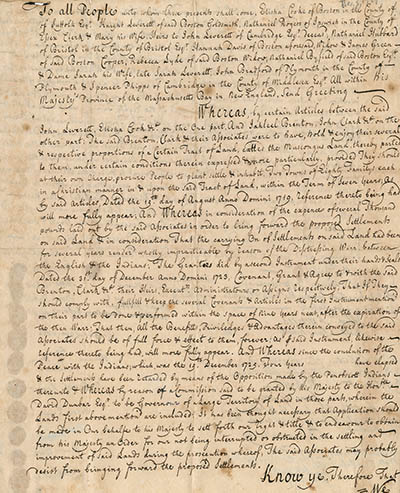 To all People unto whom these presents shall come, Elisha Cooke of Boston in the County
of Suffolk Esqr. Knight Leverett of said Boston Goldsmith, Nathaniel Rogers of Ipswich in the County of
Essex Clerk & Mary his Wife, Heirs to John Leverett of Cambridge Esqr. Deceas'd, Nathaniel Hubbard
of Bristol in the County of Bristol Esqr. Hannah Davis of Boston aforesaid Widow & James Green
of said Boston Cooper, Rebecca Lyde of said Boston Widow, Nathaniel Byfield of said Boston Esqr.
& Dame Sarah his Wife, late Sarah Leverett, John Bradford of Plymouth in the County of
Plymouth & Spencer Phipps of Cambridge in the County of Middlesex Esqr. All within His
Majesty's Province of the Massachusetts Bay in New England, Send Greeting
Whereas by certain Articles between the said
John Leverett, Elisha Cook &c. on the One part, And Jahleel Brenton, John Clark &c. on the
other part. The said Brenton, Clark & their Associates were to have, hold & enjoy their several
& respective proportions of a certain Tract of Land, called the Muscongus Land, thereby parted
to them, under certain conditions therein expressed & more particularly, provided They should
at their own Charge, procure People to plant settle & inhabit Two Towns of Eighty Families each
in a christian manner in & upon the said Tract of Land, within the Term of Seven Years, As
by said Articles Dated the 15th day of August Anno Domini 1719. reference thereto being had
will more fully appear. And Whereas in consideration of the expence of several Thousand
pounds laid out by the said Associates in order to bring forward the proposed Settlements
on said Land & in consideration That the carrying on of Settlements on said Land had been
for several years rendred wholly impracticable by reason of the Distressing Warr between
the English & the Indians, The Grantees did by a second Instrument under their hands & seals
Dated the day of December Anno Domini 1723. Covenant, Grant & Agree to & with the said
Brenton, Clark &c. their Heirs, Executrs. Administrators or Assigns respectively That If They
should comply with, fullfill & keep the several Covenants & Articles in the first Instrument mention'd
on their part to be done & performed within the space of Nine years next, after the expiration of
the then Warr. That then, All the Benefits, Priviledges & Advantages therein conveyed to the said
Associates should be of full force & effect to them forever, As said Instrument likewise
reference thereto being had, will more fully appear. And Whereas since the conclusion of the
Peace with the Indians, which was the 15th December 1725. Four years have elapsed
& the Settlements have been retarded by means of the Opposition made by the Penobscot Indians
thereunto & Whereas by reason of a Commission said to be granted by his Majesty to the Honble.
David Dunbar Esqr. to be Governour of a large Territory of Land in those parts, wherein the
Lands first abovemention'd are included: It has been thought necessary that Application should
be made in Our behalfe to his Majesty to sett forth our Right & title & to endeavour to obtain
from his Majesty an Order for our not being interrupted or obstructed in the settling and
improvement of said Lands during the prosecution whereof, The said Associates may probably
desist from bringing forward the proposed Settlements.
Know ye, Therefore That
We